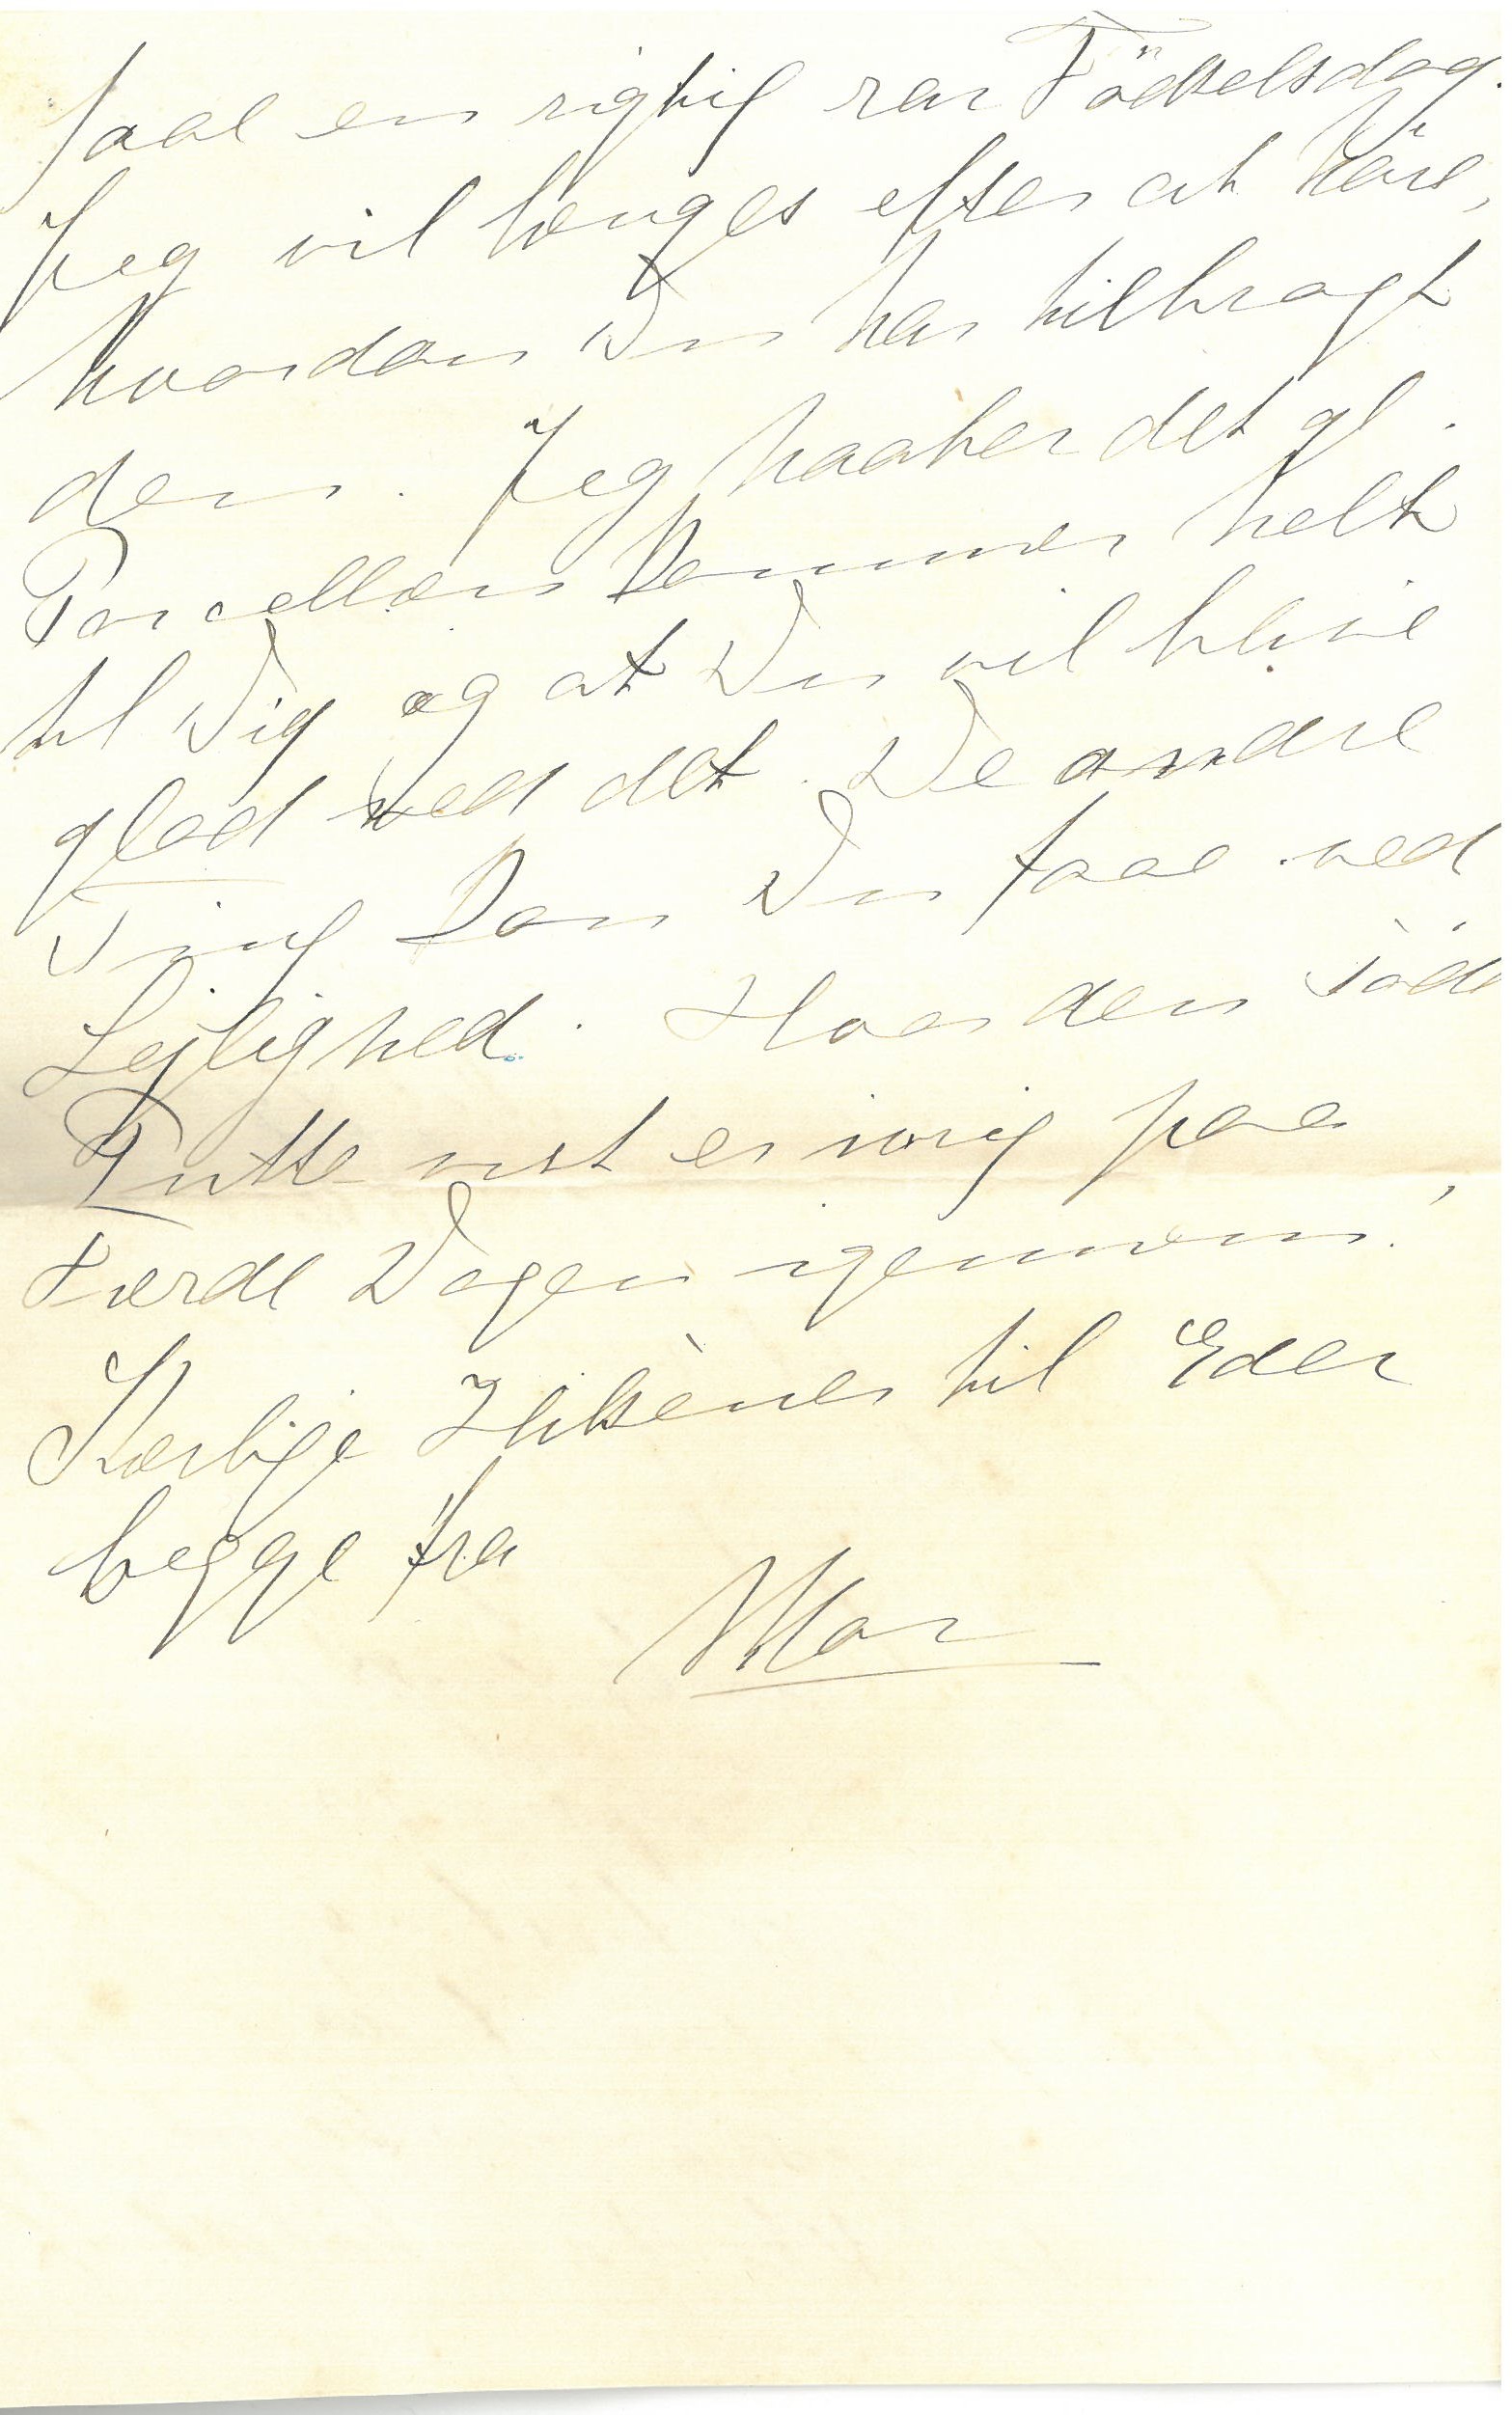 faae en rigtig rar Födselsdag.
Jeg vil længes efter at höre,
hvordan Du har tilbragt
den. Jeg haaber det gl.
Porcellæn kommer helt
til Dig og at Du vil blive
glad ved det. De andre
Ting kan Du faae ved
Lejlighed. Hvor den söde
Putte vist er ivrig paa
Færde Dagen igennem!
Kærlige Hilsener til Eder
begge fra
Mor